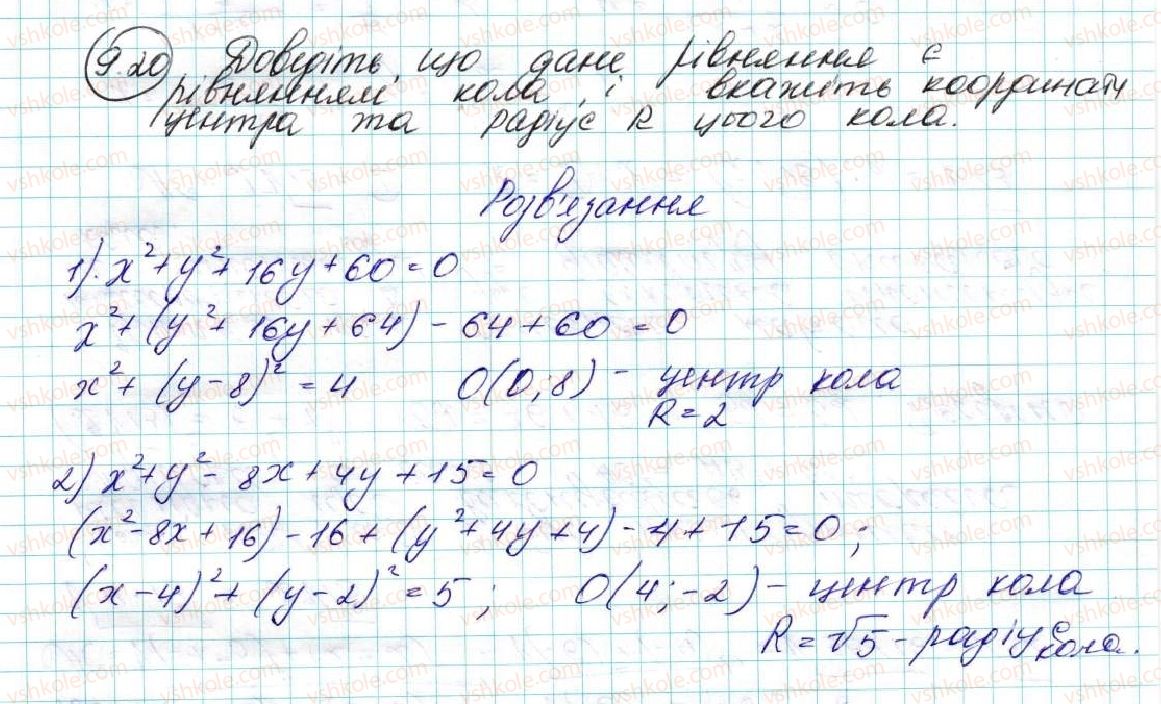 9.20 Доведіть, що дане рівняння є
рівнянням кола, і вкажіть координати
центра та радіус R цього кола.
Розв'язання
1). x²+y²+16y+60=0
x²+(y²+16y+64)-64+60=0
x²+(y-8)²=4 O(0;8) - центр кола
R=2
2) x²+y²-8x+4y+15=0
(x²-8x+16)-16+(y²+4y+4)-4+15=0;
(x-4)²+(y-2)²=5; O(4;-2) - центр кола
R=√5 - радіус кола.